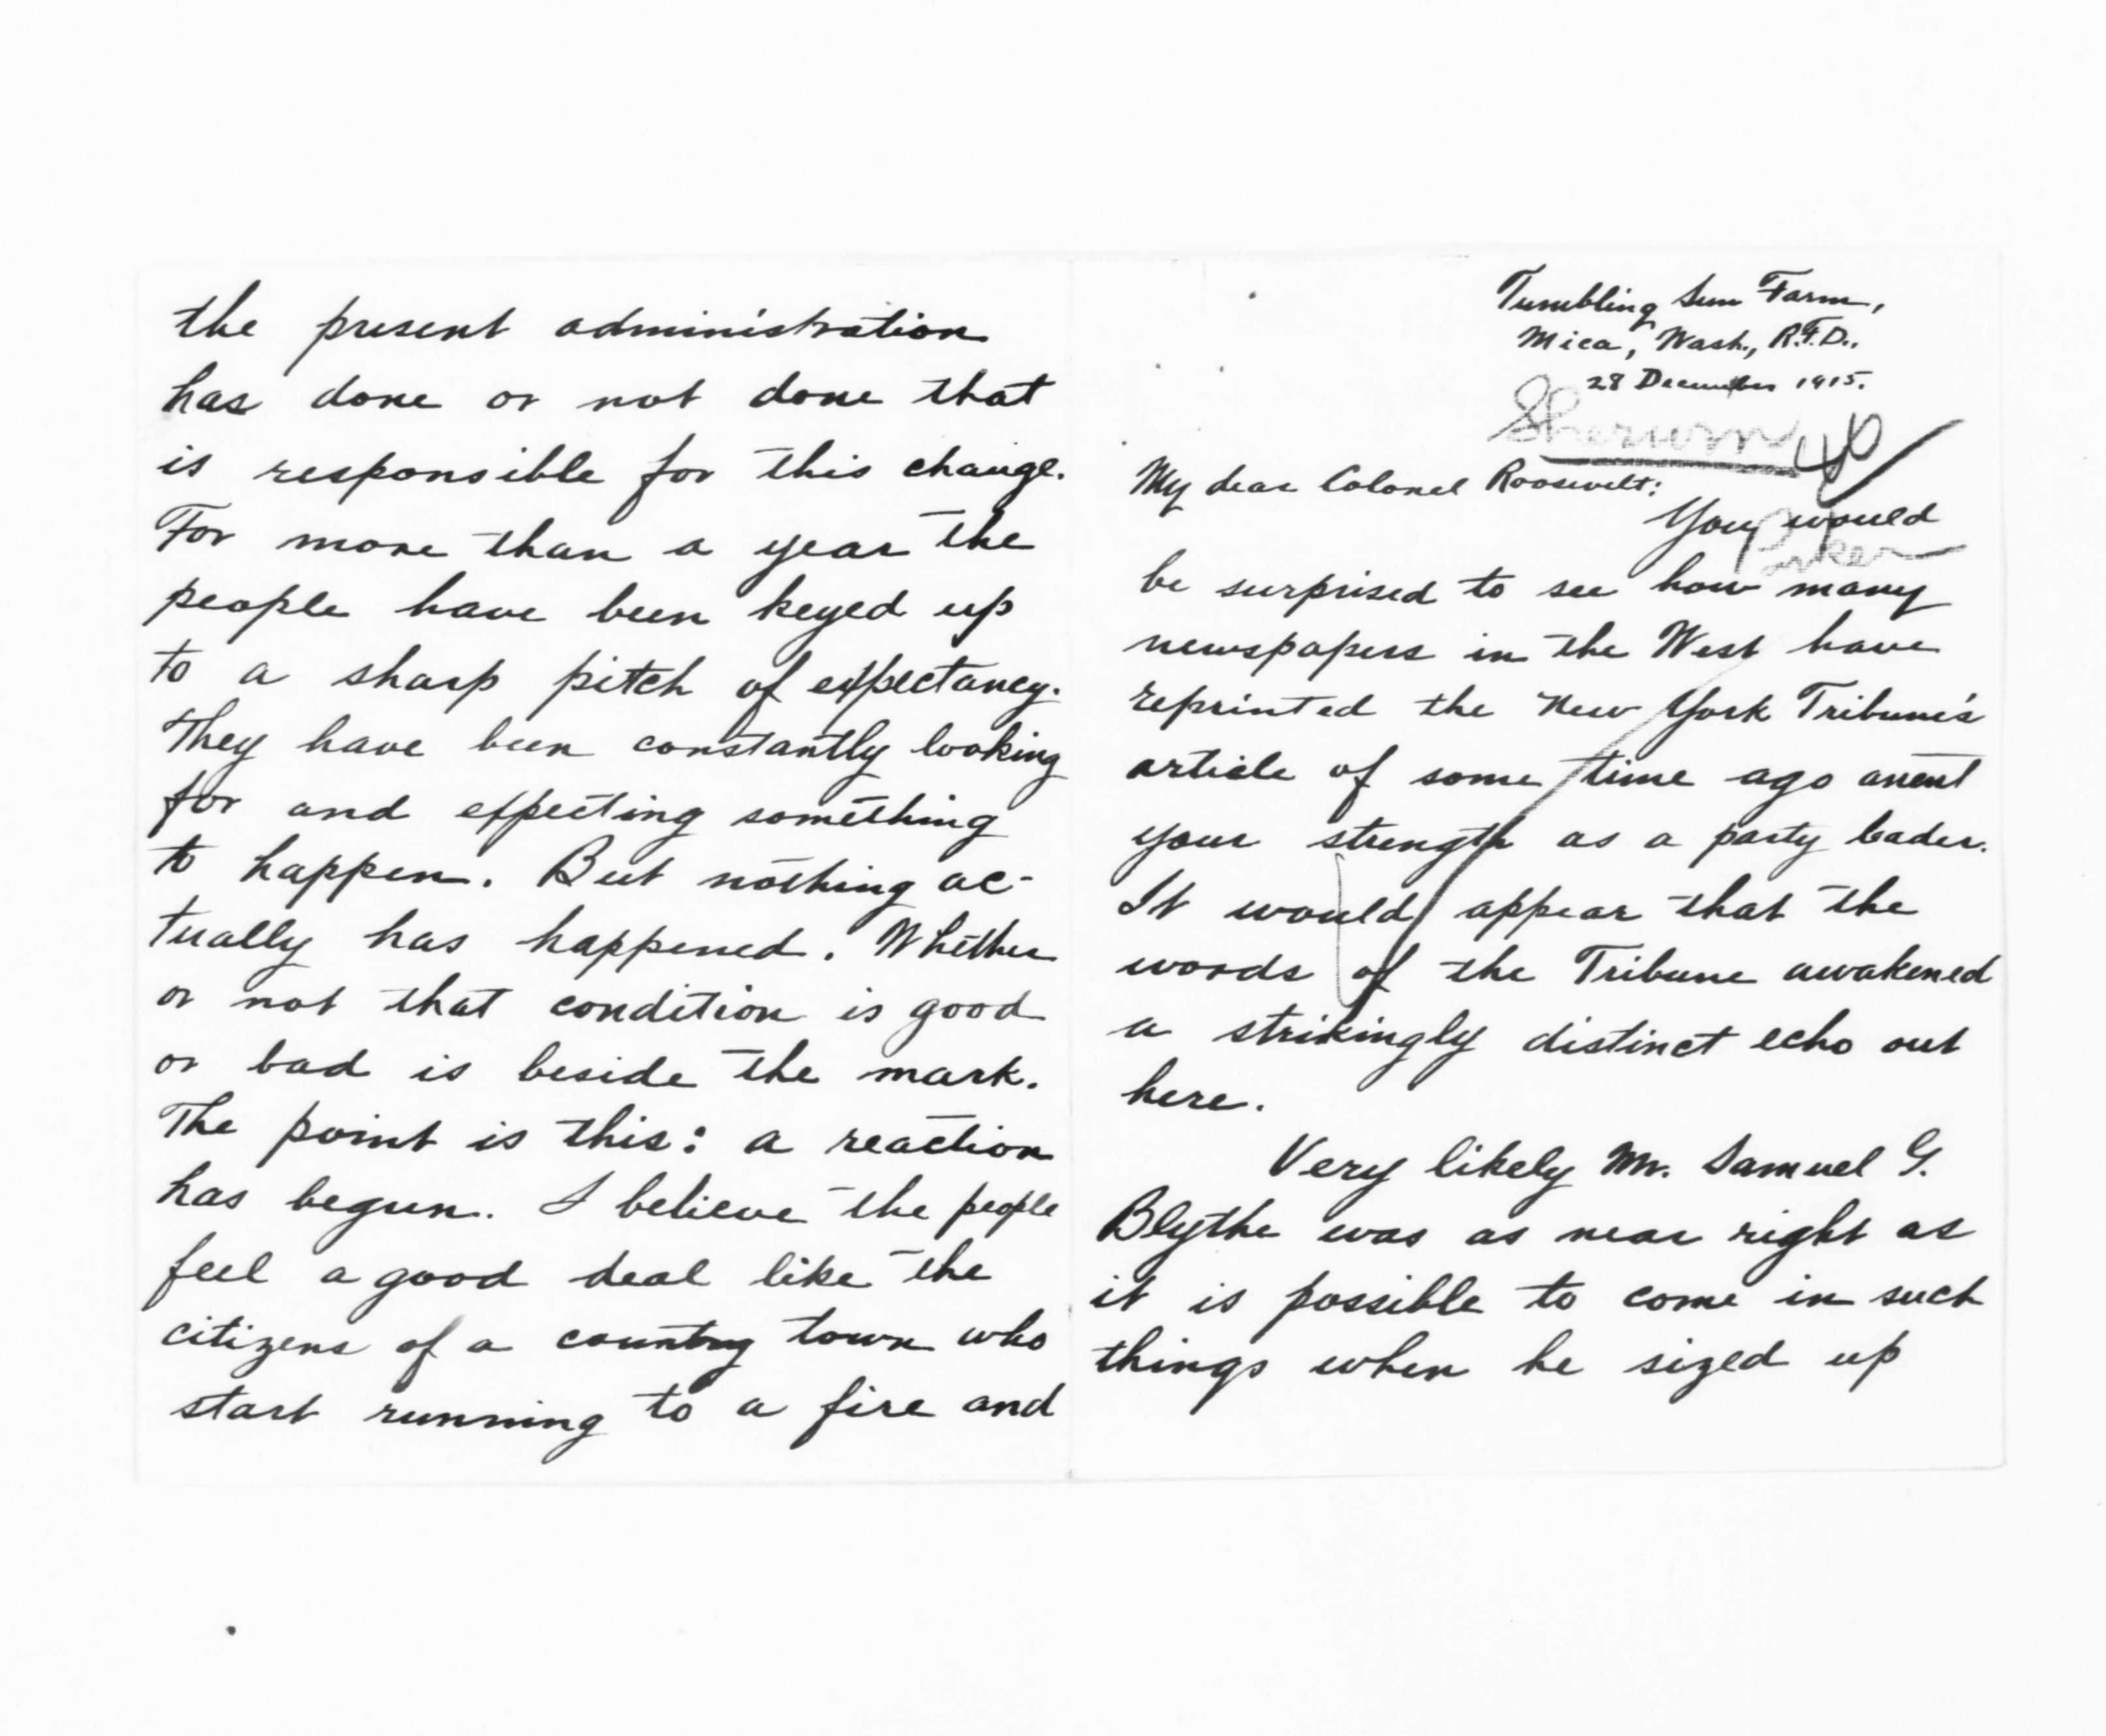 Tumbling Sun Farm,
Mica, Wash., R.F.D.,
28 December 1915.
My dear Colonel Roosevelt:
You would
Parker
be surprised to see how many
newspapers in the West have
reprinted the New York Tribune's
article of some time ago anent
your strength as a party leader.
It would appear that the
words of the Tribune awakened
a strikingly distinct echo out
here.
Very likely Mr. Samuel G.
Blythe was as near right as
it is possible to come in such
things when he sized up
the present administration
has done or not done that
is responsible for this change.
For more than a year the
people have been keyed up
to a sharp pitch of expectancy.
They have been constantly looking
for and expecting something
to happen. But nothing ac-
tually has happened. Whether
or not that condition is good
or bad is beside the mark.
The point is this: a reaction
has begun. I believe the people
feel a good deal like the
citizens of a country town who
start running to a fire and